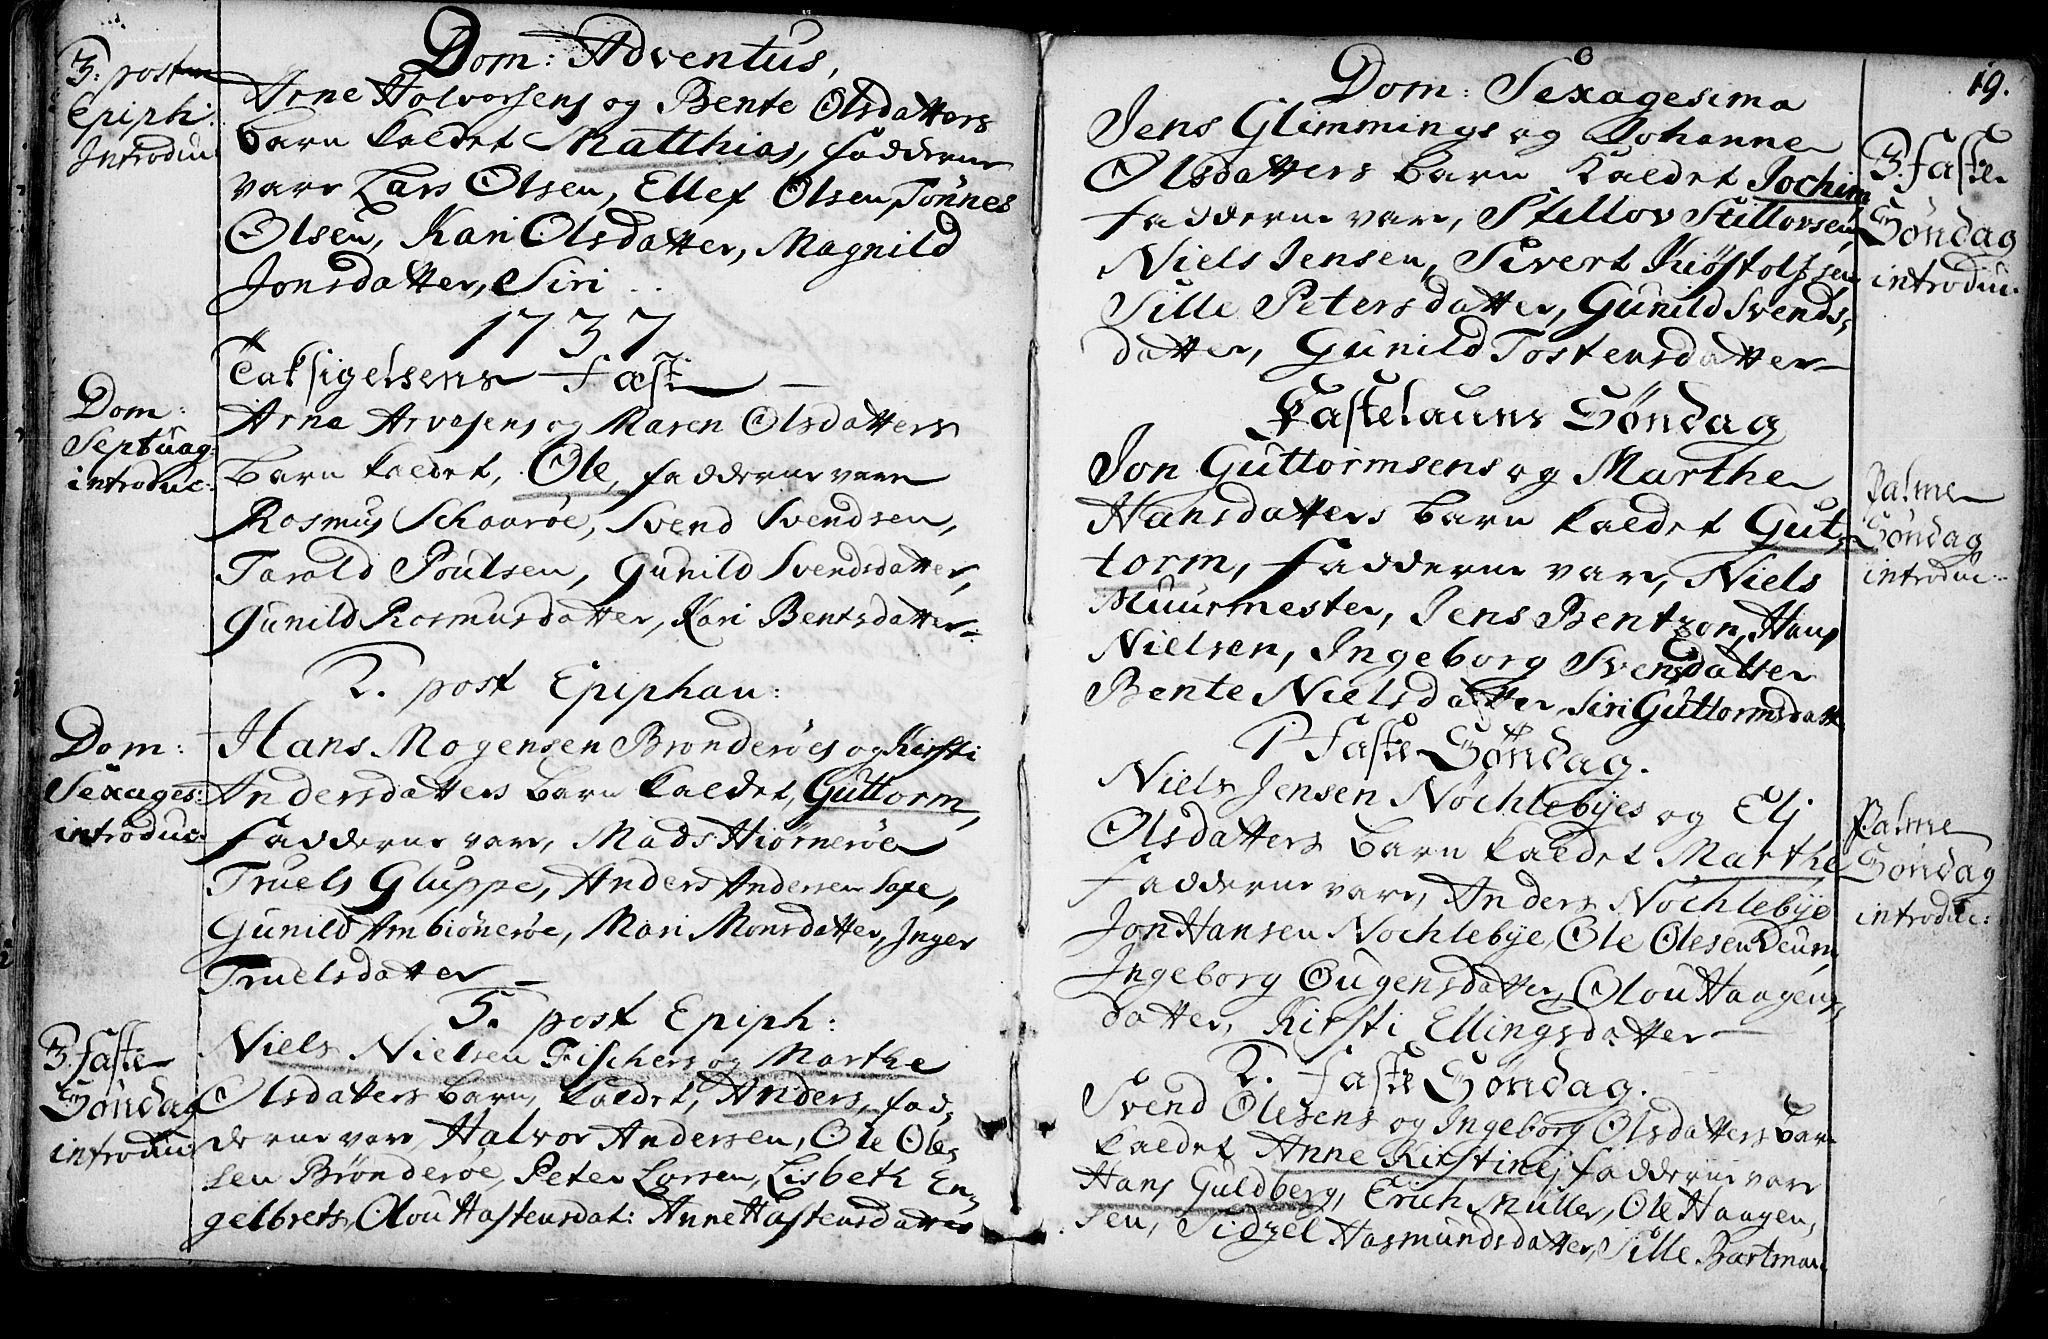 3. post
Epiph:
Introduc
Dom: Adventus,
Arne Halvorsens og Bente Olsdatters
barn kaldet Matthias, fadderne
vare Lars Olsen, Ellef Olsen, Tönnes
Olsen, Kari Olsdatter, Magnild
Jonsdatter, Siri
1737
Taksigelsens Fæst
Dom:
Septuag:
introduc:
Arne Arvesens og Maren Olsdatters
barn kaldet, Ole, fadderne vare
Rasmus Schaaröe, Svend Svendsen,
Tarald Poulsen, Gunild Svendsdatter,
Gunild Rasmusdatter, Kari Bentsdatter
2. post Epiphan:
Dom:
Sexages:
introduc:
Hans Mogensen Brönderöes og Kirsti
Andersdatters barn kaldet, Guttorm,
Fadderne vare, Mads Hiörneröe
Truels Gluppe, Anders Andersen
Gunild Ambiöneröe, Mari Monsdatter, Inger
Truelsdatter
5. post Epiph:
3. Faste
Söndag
introduc:
Niels Nielsen Fischers og Marthe
Olsdatters barn, kaldet, Anders, fad,
derne vare, Halvor Andersen, Ole Ole,
sen Brönderöe, Peter Larsen, Lisbeth En,
gelbrets, Olou Hastensdat: Anne Hastensdatter
19.
Dom: Sexagesima
Jens Glimmings og Johanne
Olsdatters barn kaldet Jochim
Fadderne vare, Stillov Stillovsen,
Niels Jensen, Sivert Kiöstolfsen
Sille Petersdatter, Gunild Svends,
datter, Gunild Tostensdatter
3. Faste
Söndag
introduc.
Fastelauns Söndag
Jon Guttormsens og Marthe
Hansdatters barn kaldet Gut,
torm, Fadderne vare, Niels
Muurmester, Jens Bentzon, Hans
Nielsen, Ingeborg Svensdatter
Bente Nielsdatter, Siri Guttormsdatt
Palme
Söndag
introduc:
1 Faste Söndag.
Niels Jensen Nöchlebÿes og Elj
Olsdatters barn kaldet Marthe
Fadderne vare, Anders Nöchlebÿe
Jon Hansen Nöchlebÿe, Ole Olesen Deurn,
Ingeborg Ougensdatter, Olou Haagens,
datter, Kirsti Ellingsdatter
Palme
Söndag
introduc:
2. Faste Söndag.
Svend Olesens og Ingeborg Olsdatters bar
kaldet Anne Kirstine, fadderne vare
Hans Guldberg, Erich Müller, Ole Haagen,
sen, Sidzel Hasmundsdatter, Sille Bartman